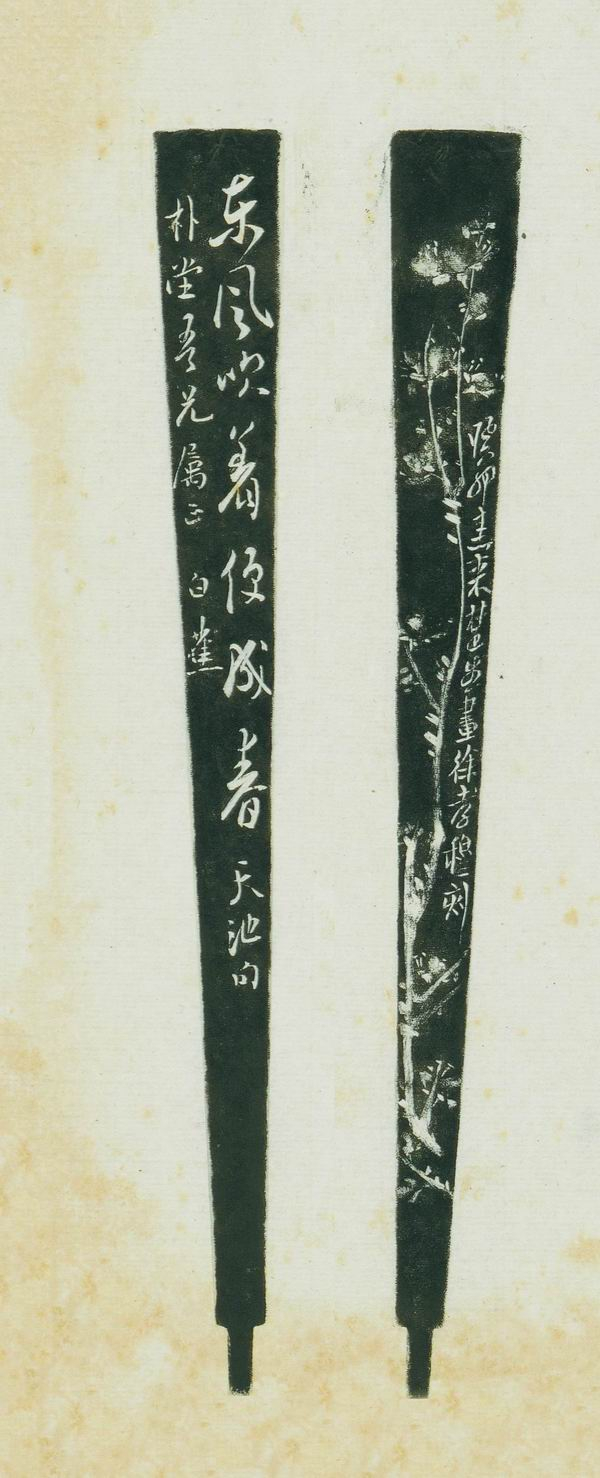 癸卯春来楚生畫徐孝穆刻
东风吹着便成春 天池句
朴堂吾兄属正 白蕉